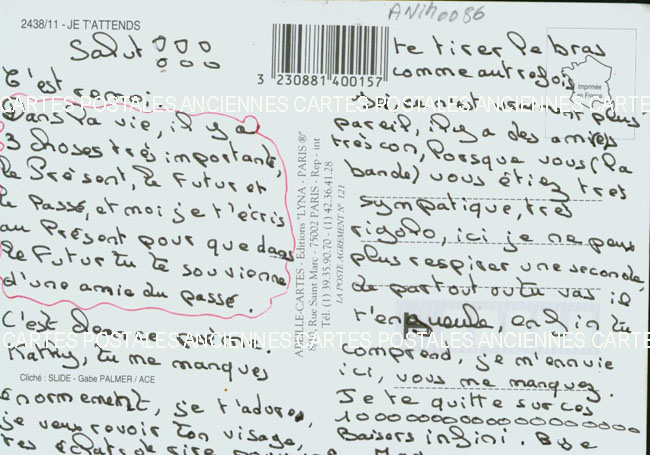 2438/11 - JE T'ATTENDS
ANIM0086
Salut !!!
C'est remoi
Dans la vie, il y a
3 choses très importante,
le Présent, le Futur et
le Passé, et moi je t'écris
au Présent pour que dans
le Futur tu te souvienne
d'une amie du passé.
C'est
Kathy, tu me manques
Cliché : SLIDE - Gabe PALMER / ACE
enormement, je t'adore,
je veux revoir ton visage,
tes éclats de rire
3 230881 400157
AGILLE-CARTES - Editions "LYNA - PARIS ®"
8, Rue Saint Marc - 75002 PARIS - Rep - int
Tél. (1) 39.35.90.70 - (1) 42.36.41.28
LA POSTE AGREMENT N° 121
te tirer le bras
comme autrefois
plus
pareil, il y a des amies
très con, lorsque vous (la
bande) vous étiez très
sympatique, très
rigolo, ici je ne peux
plus respirer une seconde
de partout ou tu vas il
t'en, enfin tu
comprend, je m'ennuie
ici, vous me manquez.
Je te quitte sur ces
10000000000000000000
Baisers infini. Bye
Imprimée
en France
CARTES POSTALES ANCIENNES CARTES POSTALES ANCIENNES CARTES POSTALES ANCIENNES
CARTES POSTALES ANCIENNES CARTES POSTALES ANCIENNES CARTES POSTALES ANCIENNES